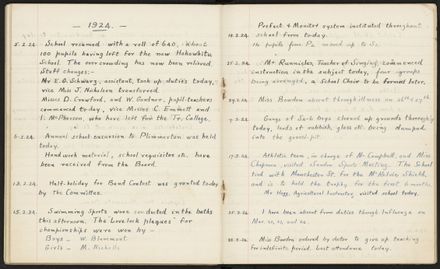 — 1924. —
5.2.24. School resumed with a roll of 640, about
100 pupils having left for the new Hokowhitu
School. The overcrowding has now been relieved.
Staff changes:-
Mr E. O. Schwarz, assistant, took up duties today,
vice Miss J. Nicholson transferred.
Misses D. Crawford, and W. Gardner, pupil-teachers
commenced to-day, vice Misses C. Emmett and
I. McPherson, who have left for the Tr. College.
Annual school excursion to Plimmerton was held
today.
Handwork material, school requisites etc. have
been received from the Board.
Half-holiday for Band Contest was granted today
by the Committee.
15.2.24. Swimming Sports were conducted in the baths
this afternoon. The Lovelock plaques for
championships were won by -
Boys - W. Blommart
Girls - M. Nicholls
Prefect & Monitor system instituted throughout
school from today.
16 pupils from P2 moved up to S1.
Mr. Runnicles, Teacher of Singing, commenced
instruction in the subject today, four groups
being arranged, a School Choir to be formed later.
Miss Bowden absent through illness on
Gangs of Sen. Boys cleaned up grounds thoroughly
today, loads of rubbish, glass etc. being dumped
into the gravel-pit.
Athletic team, in charge of Mr Campbell, and Miss
Chapman, visited Sports Meeting. The School
tied with Manchester St. for the Shield,
and is to hold the trophy for the first 6 months.
Mr Hogg, Agricultural Instructor, visited school today.
I have been absent from duties through Influenza on
Mar.
Miss Bowden ordered by doctor to give up teaching
for indefinite period. Last attendance today.